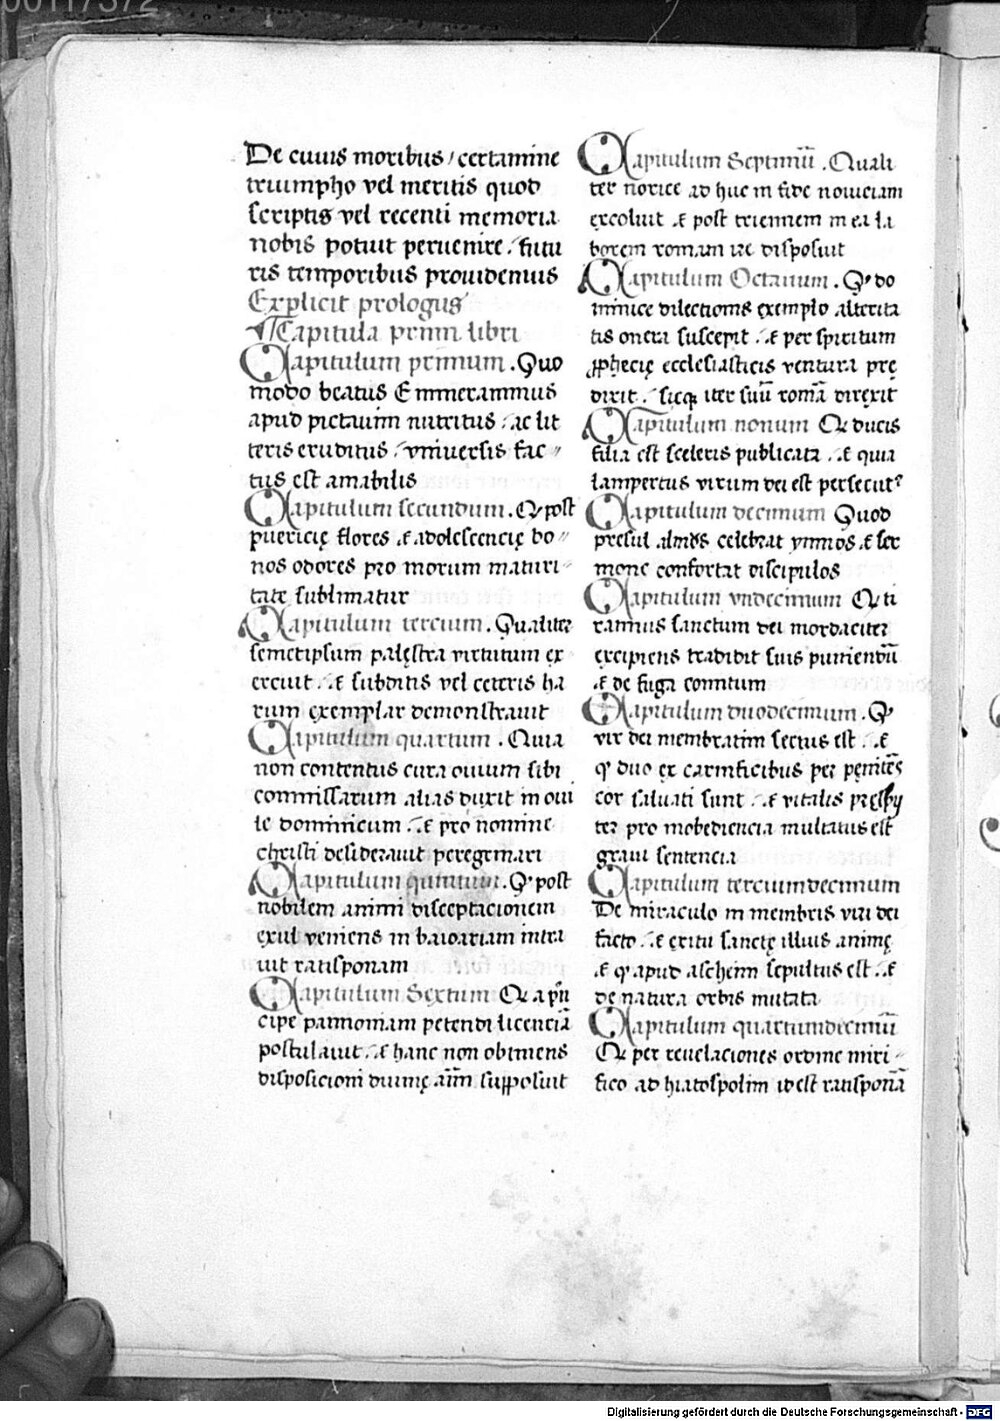 De cuius moribus / certamine
triumpho vel meritis quod
scriptis vel recenti memoria
nobis potuit peruenire . futu
ris temporibus prouidemus
Explicit prologus
Capitula primi libri
Capitulum primum . Quo
modo beatus Emmerammus
apud pictauim nutritus . ac lit
teris eruditus . vniuersis fac〃
tus est amabilis
Capitulum secundum . Qꝛ post
puericię flores . & adolescencię bo〃
nos odores pro morum maturi〃
tate sublimatur
Capitulum tercium . Qualiter
semetipsum palęstra virtutum ex
ercuit . & subditis vel ceteris ha
rum exemplar demonstrauit
Capitulum quartum . Quia
non contentus cura ouium sibi
commissarum alias duxit in oui
le dominicum . & pro nomine
christi desiderauit peregrinari
Capitulum quintum . Qꝛ post
nobilem animi disceptacionem
exul veniens in baioariam intra
uit ratisponam
Capitulum Sextum Qꝛ a p̃n
cipe pannoniam petendi licenciā
postulauit . & hanc non obtinens
disposicioni diuinę aīm supposuit
Capitulum Septimū . Quali
ter norice ad huc in fide nouiciam
excoluit & post triennem in ea la
borem romam ire disposuit
Capitulum Octauum . Qꝛ do
minice dilectionis exemplo alterita
tis onera suscepit . & per spiritum
ꝓphecię ecclesiasticis ventura prę
dixit . sicqꝫ iter suū romā direxit
Capitulum nonum Qꝛ ducis
filia est sceleris publicata . & quia
lampertus virum dei est persecut⁹
Capitulum decimum Quod
presul almus celebrat ymnos & ser
mone confortat discipulos
Capitulum vndecimum Qꝛ ti
rannus sanctum dei mordaciter
excipiens tradidit suis puniendū
& de fuga comitum
Capitulum duodecimum . Qꝛ
vir dei membratim sectus est . &
qꝛ duo ex carnificibus per pęnitēs
cor saluati sunt . & vitalis presby
ter pro inobediencia multatus est
graui sentencia
Capitulum terciumdecimum
De miraculo in membris viri dei
facto . & exitu sanctę illius animę
& qꝛ apud ascheim sepultus est . &
de natura orbis mutata
Capitulum quartumdecimū
Qꝛ per reuelaciones ordine miri-
fico ad hiatospolim id est ratisponā
Digitalisierung gefördert durch die Deutsche Forschungsgemeinschaft - DFG